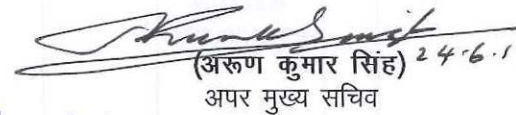 (अरूण कुमार सिंह) 24.6.1
अपर मुख्य सचिव